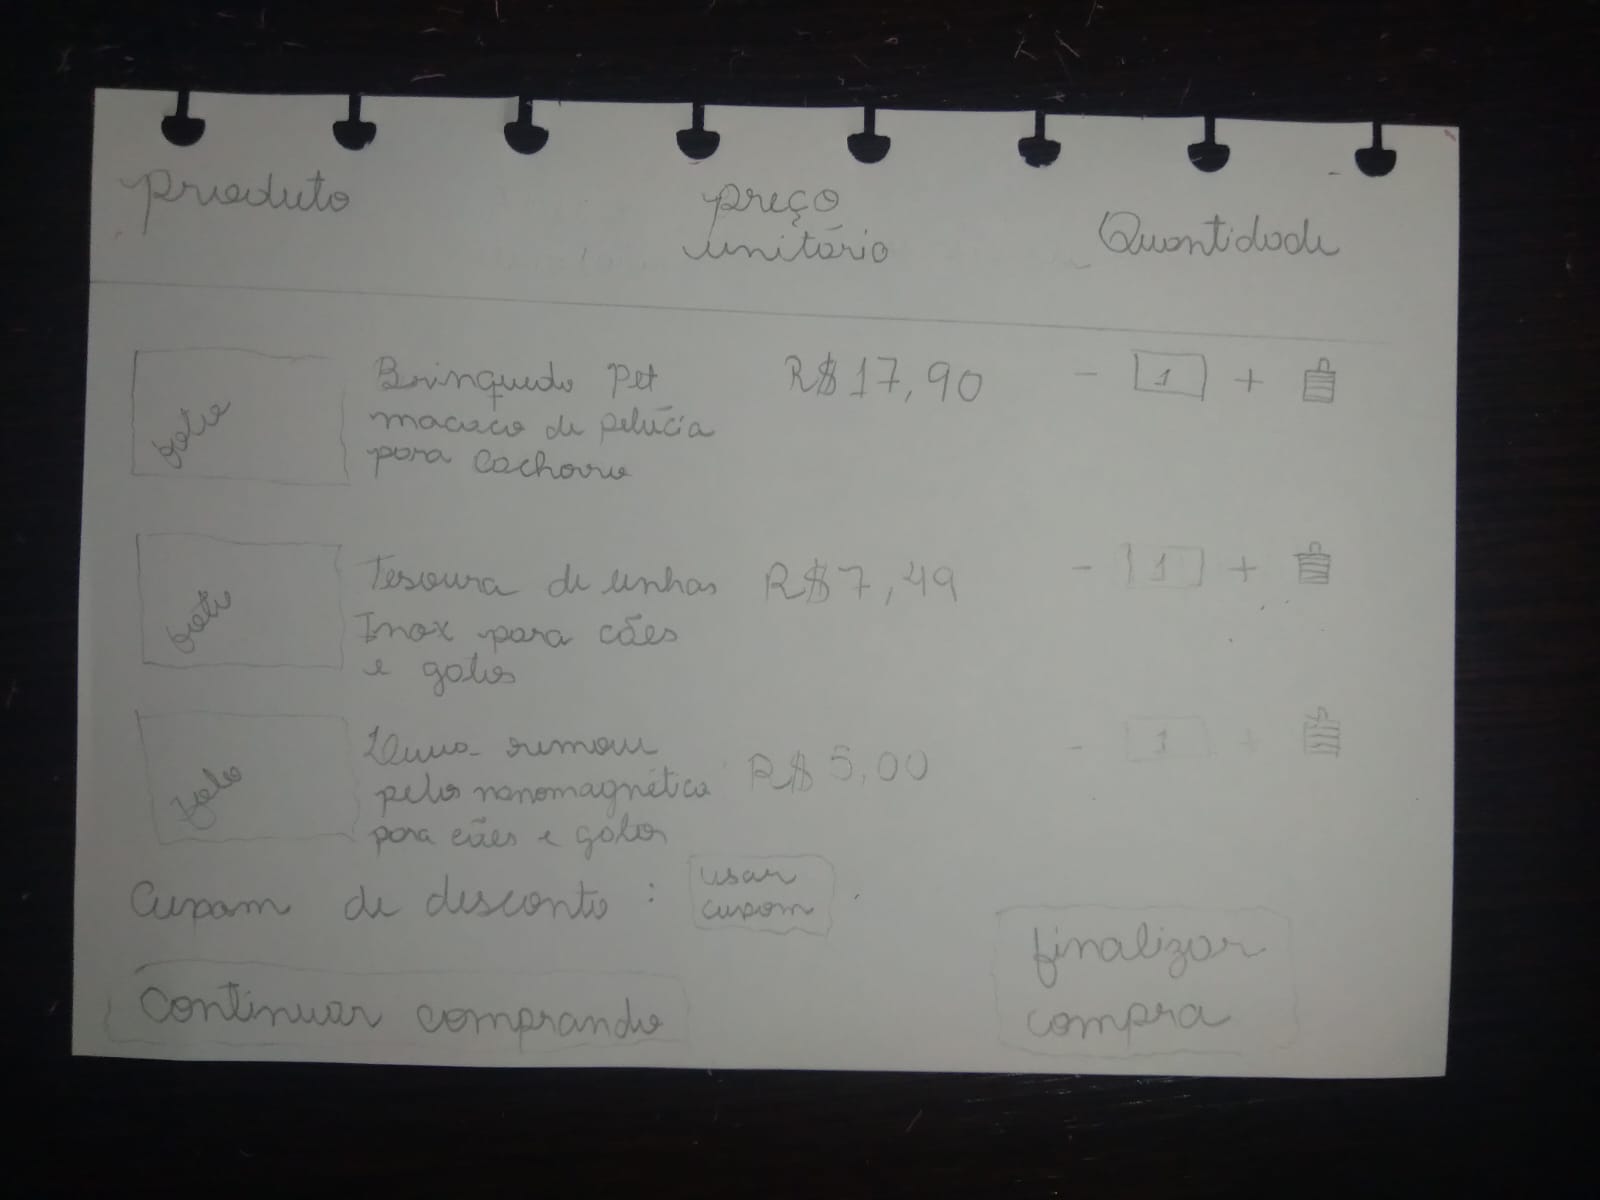 produto
preço
unitário
Quantidade
foto
Brinquedo pet
macaco de pelúcia
para cachorro
R$ 17,90
- 1 +
foto
Tesoura de unhas
Inox para cães
e gatos
R$ 7,49
- 1 +
foto
remove
pelos nanomagnética
para cães e gatos
R$ 5,00
- 1 +
Cupom de desconto :
usar
cupom
continuar comprando
finalizar
compra